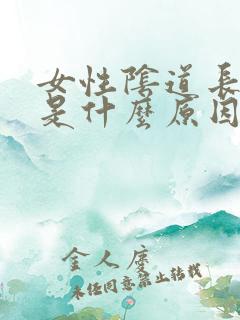 女性陰道長
是什麼原因
金人慶
未经同意禁止转载